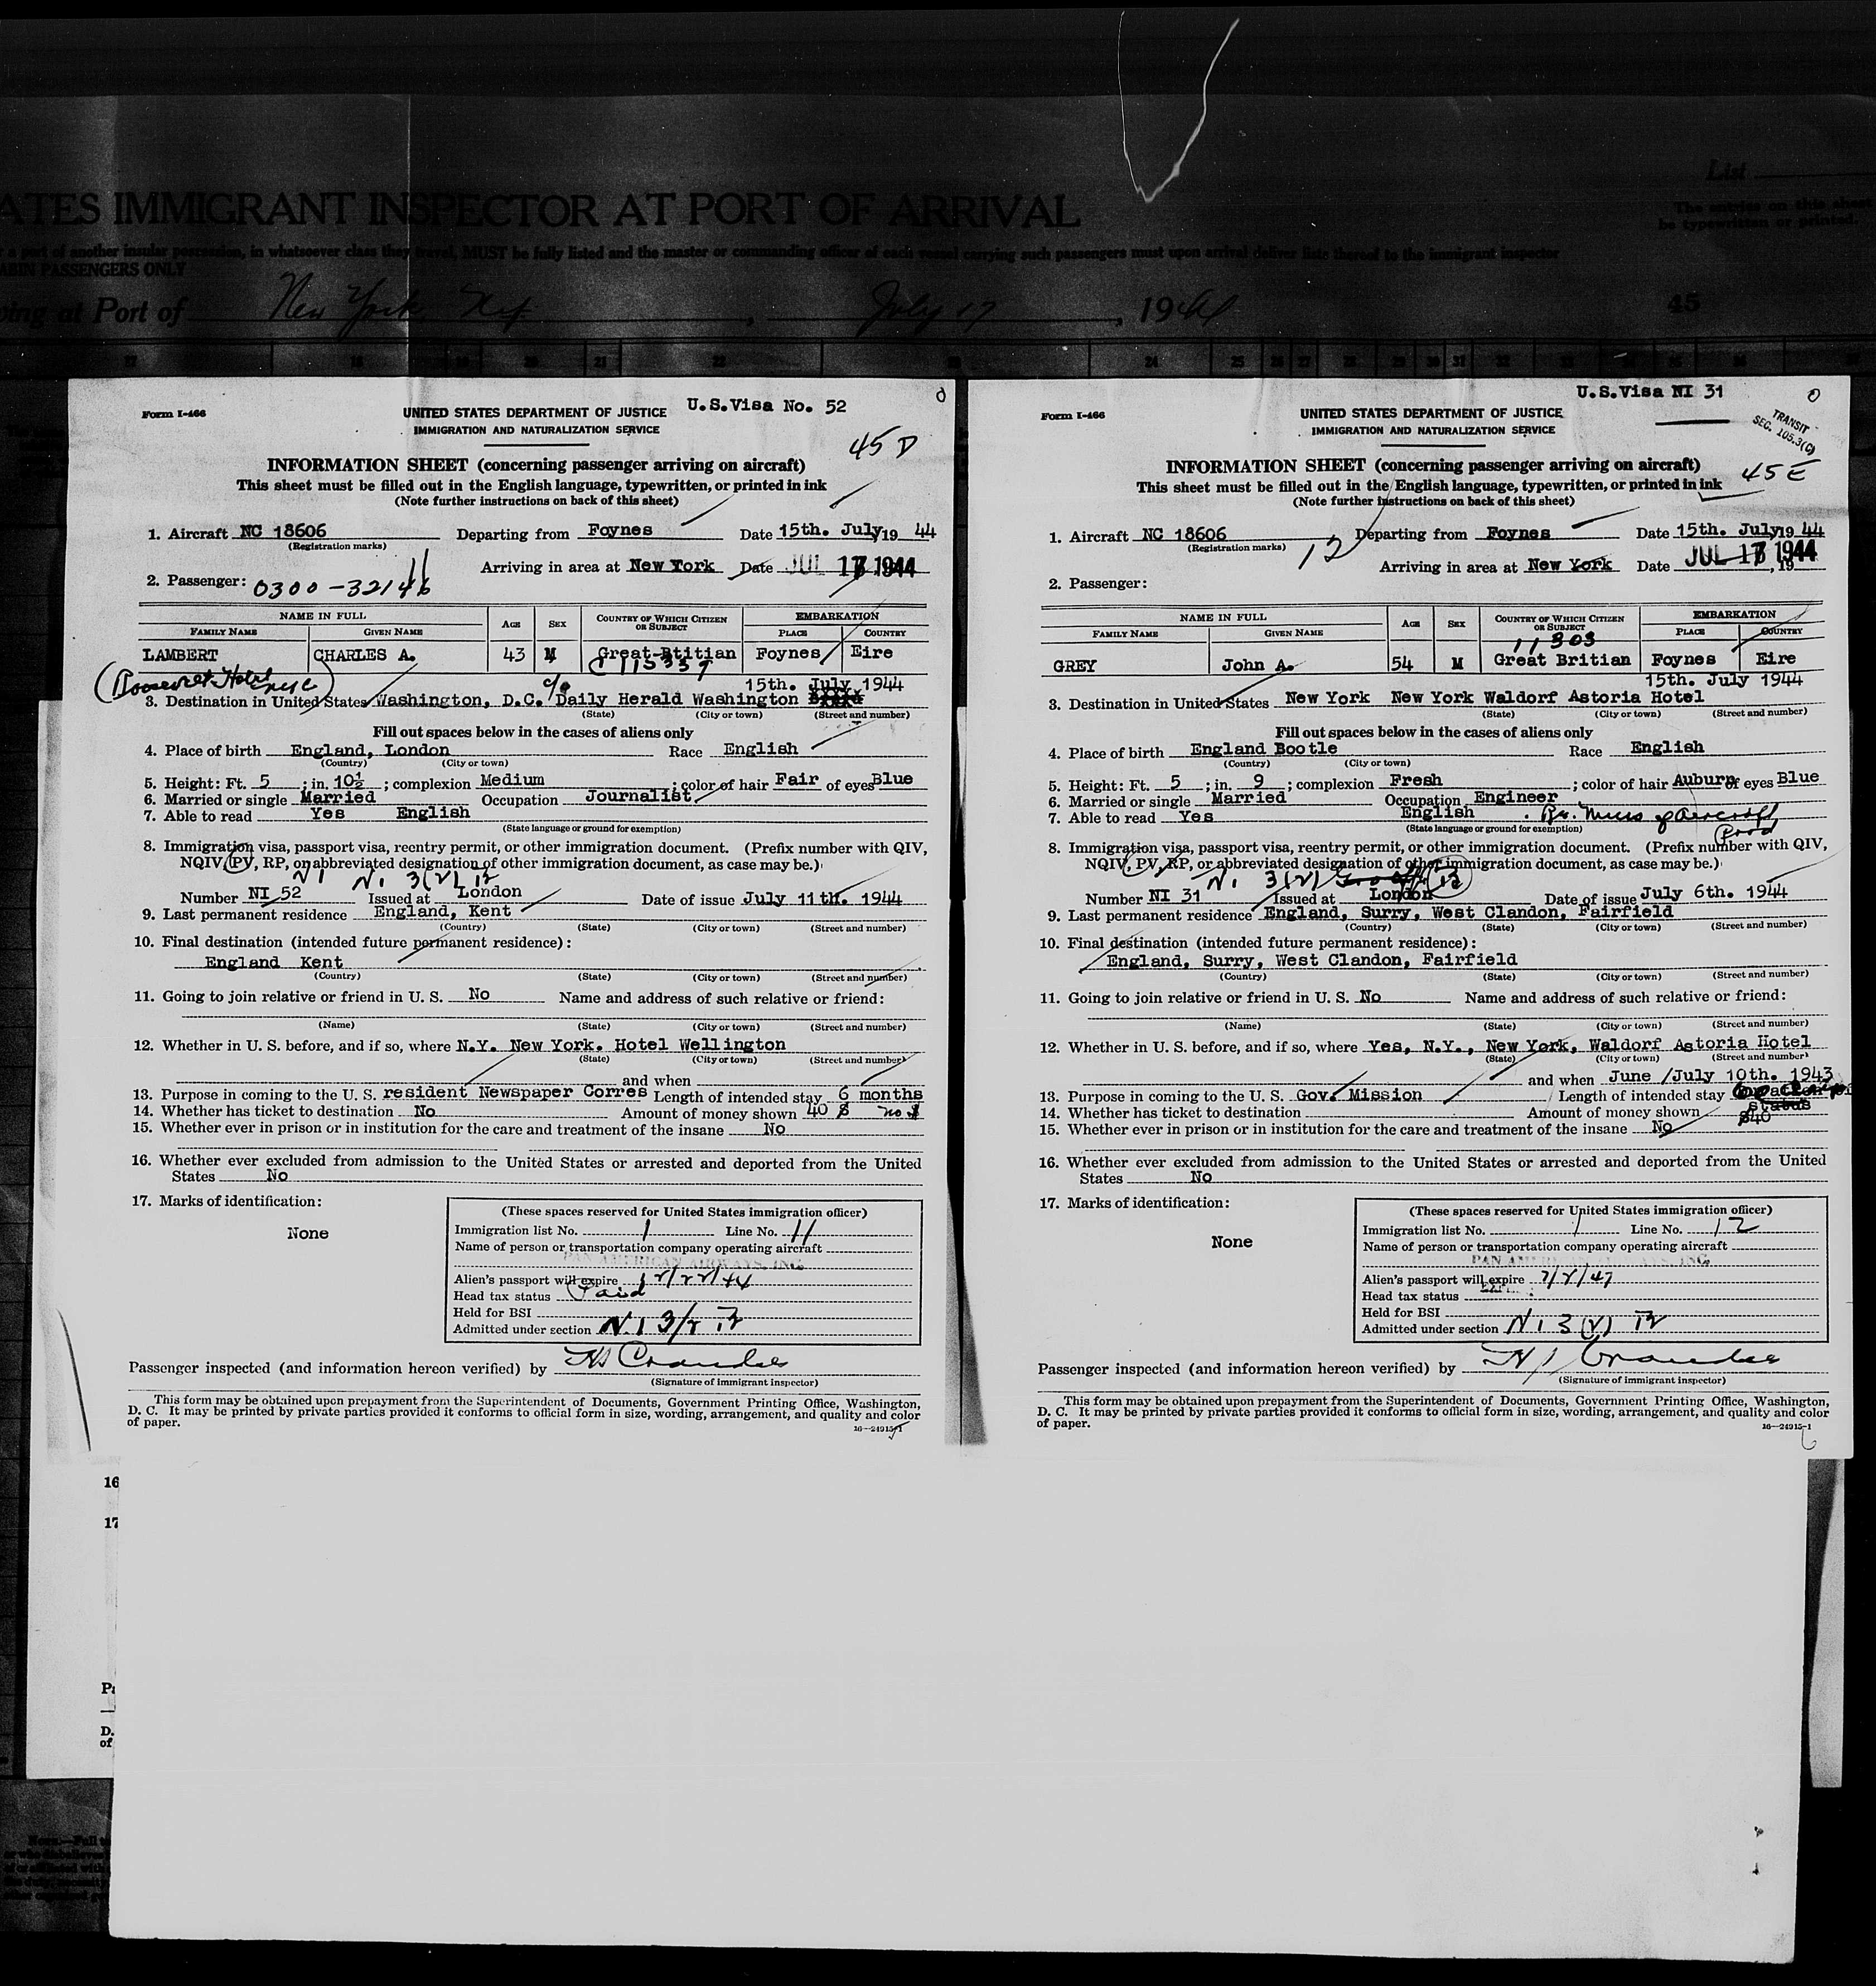 List
ATES IMMIGRANT INSPECTOR AT PORT OF ARRIVAL
The entries on this sheet
be typewritten or printed.
a port of another insular possession, in whatsoever class they travel, MUST be fully listed and the master or commanding officer of each vessel carrying such passengers must upon arrival deliver lists thereof to the immigrant inspector
ABIN PASSENGERS ONLY
ving at Port of New York, July 17, 1944
45
U.S.Visa No. 52
Form I-466
UNITED STATES DEPARTMENT OF JUSTICE
IMMIGRATION AND NATURALIZATION SERVICE
45 D
INFORMATION SHEET (concerning passenger arriving on aircraft)
This sheet must be filled out in the English language, typewritten, or printed in ink
(Note further instructions on back of this sheet)
1. Aircraft NC 18606 Departing from Foynes Date 15th. July 19 44
(Registration marks)
11
Arriving in area at New York Date JUL 17 1944
2. Passenger: 0300-32146
NAME IN FULL AGE SEX COUNTRY OF WHICH CITIZEN OR SUBJECT EMBARKATION
FAMILY NAME GIVEN NAME PLACE COUNTRY
LAMBERT CHARLES A. 43 M Great Btitian Foynes Eire
C 115339
(Roosevelt Hotel NYC)
15th. July 1944
3. Destination in United States Washington, D.C. c/o Daily Herald Washington
(State) (City or town) (Street and number)
Fill out spaces below in the cases of aliens only
4. Place of birth England, London Race English
(Country) (City or town)
5. Height: Ft. 5; in. 10½; complexion Medium; color of hair Fair of eyes Blue
6. Married or single Married Occupation Journalist
7. Able to read Yes English
(State language or ground for exemption)
8. Immigration visa, passport visa, reentry permit, or other immigration document. (Prefix number with QIV,
NQIV, PV, RP, or abbreviated designation of other immigration document, as case may be.)
NI NI 3(2) 12
Number NI 52 Issued at London Date of issue July 11th. 1944
9. Last permanent residence England, Kent
(Country) (State) (City or town) (Street and number)
10. Final destination (intended future permanent residence):
England Kent
(Country) (State) (City or town) (Street and number)
11. Going to join relative or friend in U. S. No Name and address of such relative or friend:
(Name) (State) (City or town) (Street and number)
12. Whether in U. S. before, and if so, where N.Y. New York. Hotel Wellington
(State) (City or town) (Street and number)
and when
13. Purpose in coming to the U. S. resident Newspaper Corres Length of intended stay 6 months
14. Whether has ticket to destination No Amount of money shown 40 $
15. Whether ever in prison or in institution for the care and treatment of the insane No
16. Whether ever excluded from admission to the United States or arrested and deported from the United
States No
17. Marks of identification:
None
(These spaces reserved for United States immigration officer)
Immigration list No. 1 Line No. 11
Name of person or transportation company operating aircraft
PAN AMERICAN AIRWAYS, INC.
Alien's passport will expire 12/22/44
Head tax status Paid
Held for BSI
Admitted under section N.I 3/2
Passenger inspected (and information hereon verified) by
(Signature of immigrant inspector)
This form may be obtained upon prepayment from the Superintendent of Documents, Government Printing Office, Washington,
D. C. It may be printed by private parties provided it conforms to official form in size, wording, arrangement, and quality and color
of paper.
16—24915-1
U.S.Visa NI 31
Form I-466
UNITED STATES DEPARTMENT OF JUSTICE
IMMIGRATION AND NATURALIZATION SERVICE
TRANSIT
SEC. 105.3(C)
45 E
INFORMATION SHEET (concerning passenger arriving on aircraft)
This sheet must be filled out in the English language, typewritten, or printed in ink
(Note further instructions on back of this sheet)
1. Aircraft NC 18606 Departing from Foynes Date 15th. July 19 44
(Registration marks)
12
Arriving in area at New York Date JUL 17 1944, 19
2. Passenger:
NAME IN FULL AGE SEX COUNTRY OF WHICH CITIZEN OR SUBJECT EMBARKATION
FAMILY NAME GIVEN NAME PLACE COUNTRY
11303
GREY John A. 54 M Great Britian Foynes Eire
15th. July 1944
3. Destination in United States New York New York Waldorf Astoria Hotel
(State) (City or town) (Street and number)
Fill out spaces below in the cases of aliens only
4. Place of birth England Bootle Race English
(Country) (City or town)
5. Height: Ft. 5; in. 9; complexion Fresh; color of hair Auburn of eyes Blue
6. Married or single Married Occupation Engineer
7. Able to read Yes English
(State language or ground for exemption)
Br. Miss of Aircraft Prod
8. Immigration visa, passport visa, reentry permit, or other immigration document. (Prefix number with QIV,
NQIV, PV, RP, or abbreviated designation of other immigration document, as case may be.)
NI 3(2)
Number NI 31 Issued at London Date of issue July 6th. 1944
9. Last permanent residence England, Surry, West Clandon, Fairfield
(Country) (State) (City or town) (Street and number)
10. Final destination (intended future permanent residence):
England, Surry, West Clandon, Fairfield
(Country) (State) (City or town) (Street and number)
11. Going to join relative or friend in U. S. No Name and address of such relative or friend:
(Name) (State) (City or town) (Street and number)
12. Whether in U. S. before, and if so, where Yes, N.Y., New York, Waldorf Astoria Hotel
(State) (City or town) (Street and number)
and when June /July 10th. 1943
13. Purpose in coming to the U. S. Gov. Mission Length of intended stay
status
14. Whether has ticket to destination Amount of money shown $40
15. Whether ever in prison or in institution for the care and treatment of the insane No
16. Whether ever excluded from admission to the United States or arrested and deported from the United
States No
17. Marks of identification:
None
(These spaces reserved for United States immigration officer)
Immigration list No. 1 Line No. 12
Name of person or transportation company operating aircraft
PAN AMERICAN AIRWAYS, INC.
Alien's passport will expire 7/2/47
Head tax status
Held for BSI
Admitted under section NI 3(2)
Passenger inspected (and information hereon verified) by
(Signature of immigrant inspector)
This form may be obtained upon prepayment from the Superintendent of Documents, Government Printing Office, Washington,
D. C. It may be printed by private parties provided it conforms to official form in size, wording, arrangement, and quality and color
of paper.
16—24915-1
16
17
Pa
D.
of